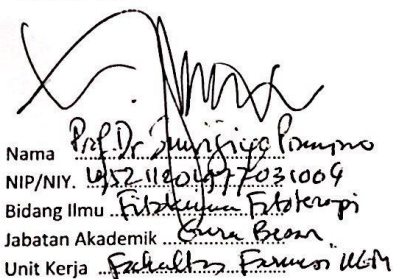 Nama Prof. Dr. Suwijiyo Pramono
NIP/NIY. 195211201977031004
Bidang Ilmu Fitokimia Fitoterapi
Jabatan Akademik Guru Besar
Unit Kerja Fakultas Farmasi UGM